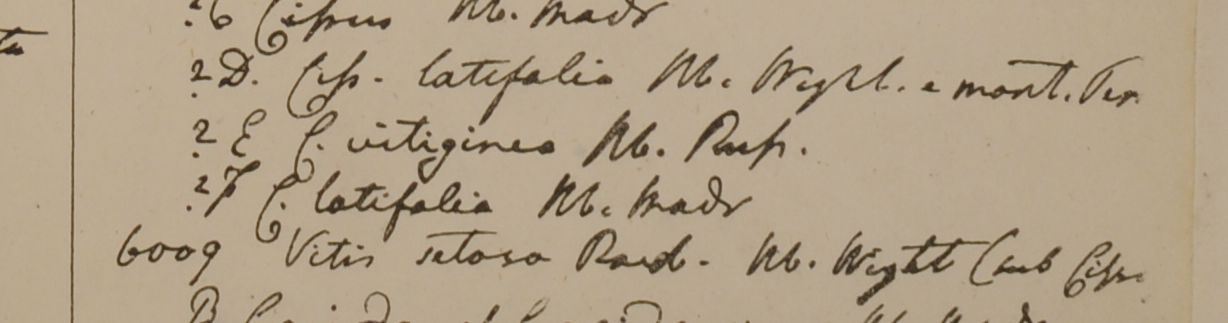 ?C Cissus Hb. Madr
?D. Ciss. latifolia Hb. Wight. e mont.
?E C. vitiginea Hb. Russ.
?F C. latifolia Hb. Madr
6009 Vitis setosa Hb. Wight (sub Ciss.